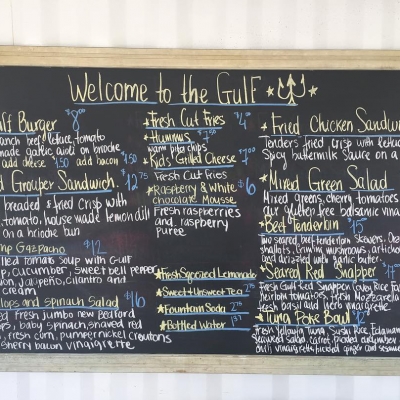 Welcome to the Gulf
lf Burger $8.00
ranch beef, lettuce, tomato
made garlic aioli on brioche
add cheese $1.50 add bacon $1.50
d Grouper Sandwich $12.75
breaded & fried crisp with
tomato, house made lemon dill
on a brioche bun
mp Gazpacho $12
lled tomato soup with Gulf
p, cucumber, sweet bell pepper
on, jalapeño, cilantro and
cream
lops and Spinach Salad $16
ed fresh jumbo new Bedford
ps, baby spinach, shaved red
, fresh corn, pumpernickel croutons
sherry bacon vinaigrette
Fresh Cut Fries $4
Hummus $7.50
warm pita chips
Kids Grilled Cheese $7.00
Fresh Cut Fries
Raspberry & White $6
chocolate Mousse
Fresh raspberries
and raspberry
puree
Fresh Squeezed Lemonade
Sweet & Unsweet Tea
Fountain Soda
Bottled Water
Fried Chicken Sandw
Tenders fried crisp with
Spicy buttermilk Sauce on a
Mixed Green Salad
Mixed greens, cherry tomatoes
our gluten free balsamic vina
Beef Tenderloin 15
Two seared beef tenderloin skewers,
shallots, Crimini mushrooms,
drizzled with garlic butter
Seared Red Snapper
Fresh Gulf Red Snapper,
heirloom tomatoes, fresh Mozzarella
fresh basil and herb vinaigrette
Tuna Poke Bowl
Fresh Yellowfin Tuna, Sushi Rice, Edamame
Seaweed salad, carrot, pickled cucumber
vinaigrette, pickled ginger and sesame